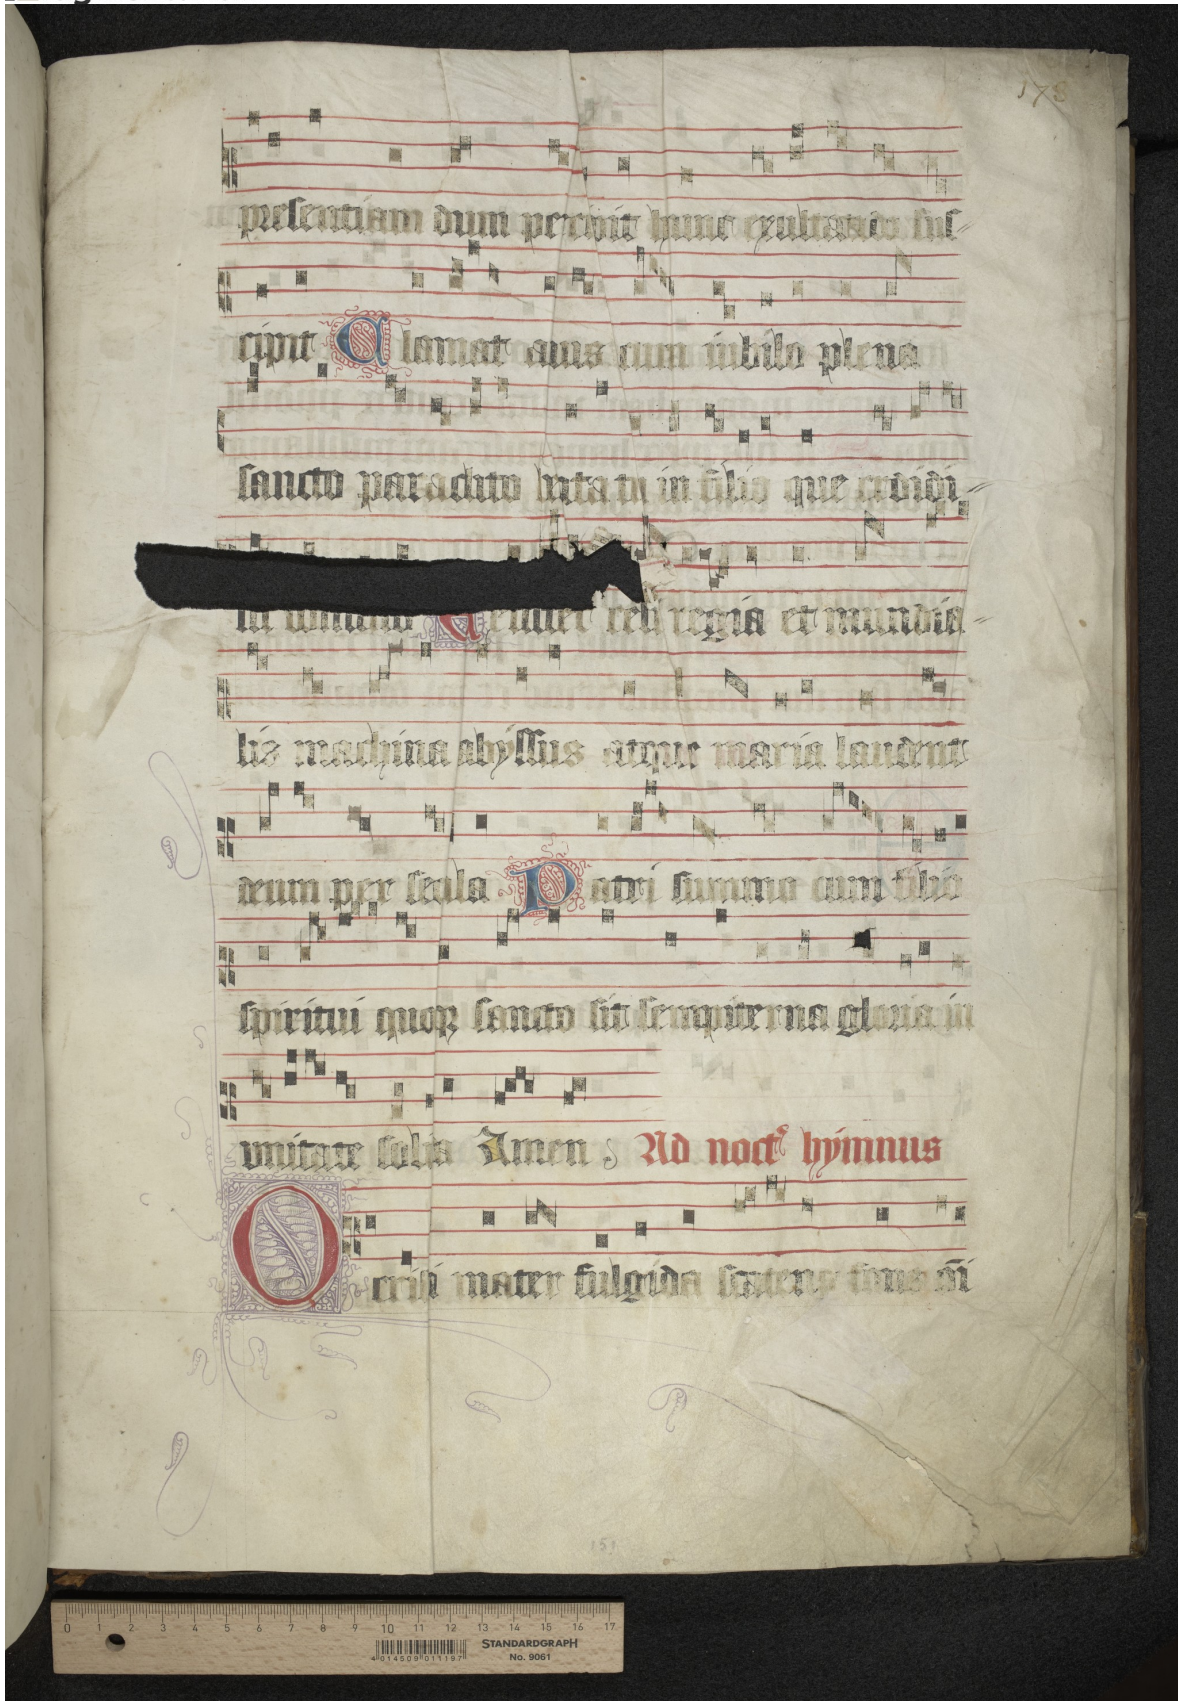 173
presentiam dum percipit hunc exultando sus
cipit Clamat auis cum iubilo plena
sancto paraclito beata tu in filio que credidi
sti domino Veneret celi regia et mundia
lis machina abyssus atque maria laudent
deum per secula Patri summo cum filio
spiritui quoqꝫ sancto sit sempiterna gloria in
vnitate solita Amen Ad noct hymnus
O cristi mater fulgida scatens fons
151
0 1 2 3 4 5 6 7 8 9 10 11 12 13 14 15 16 17
4 014509 011197
STANDARDGRAPH
No. 9061